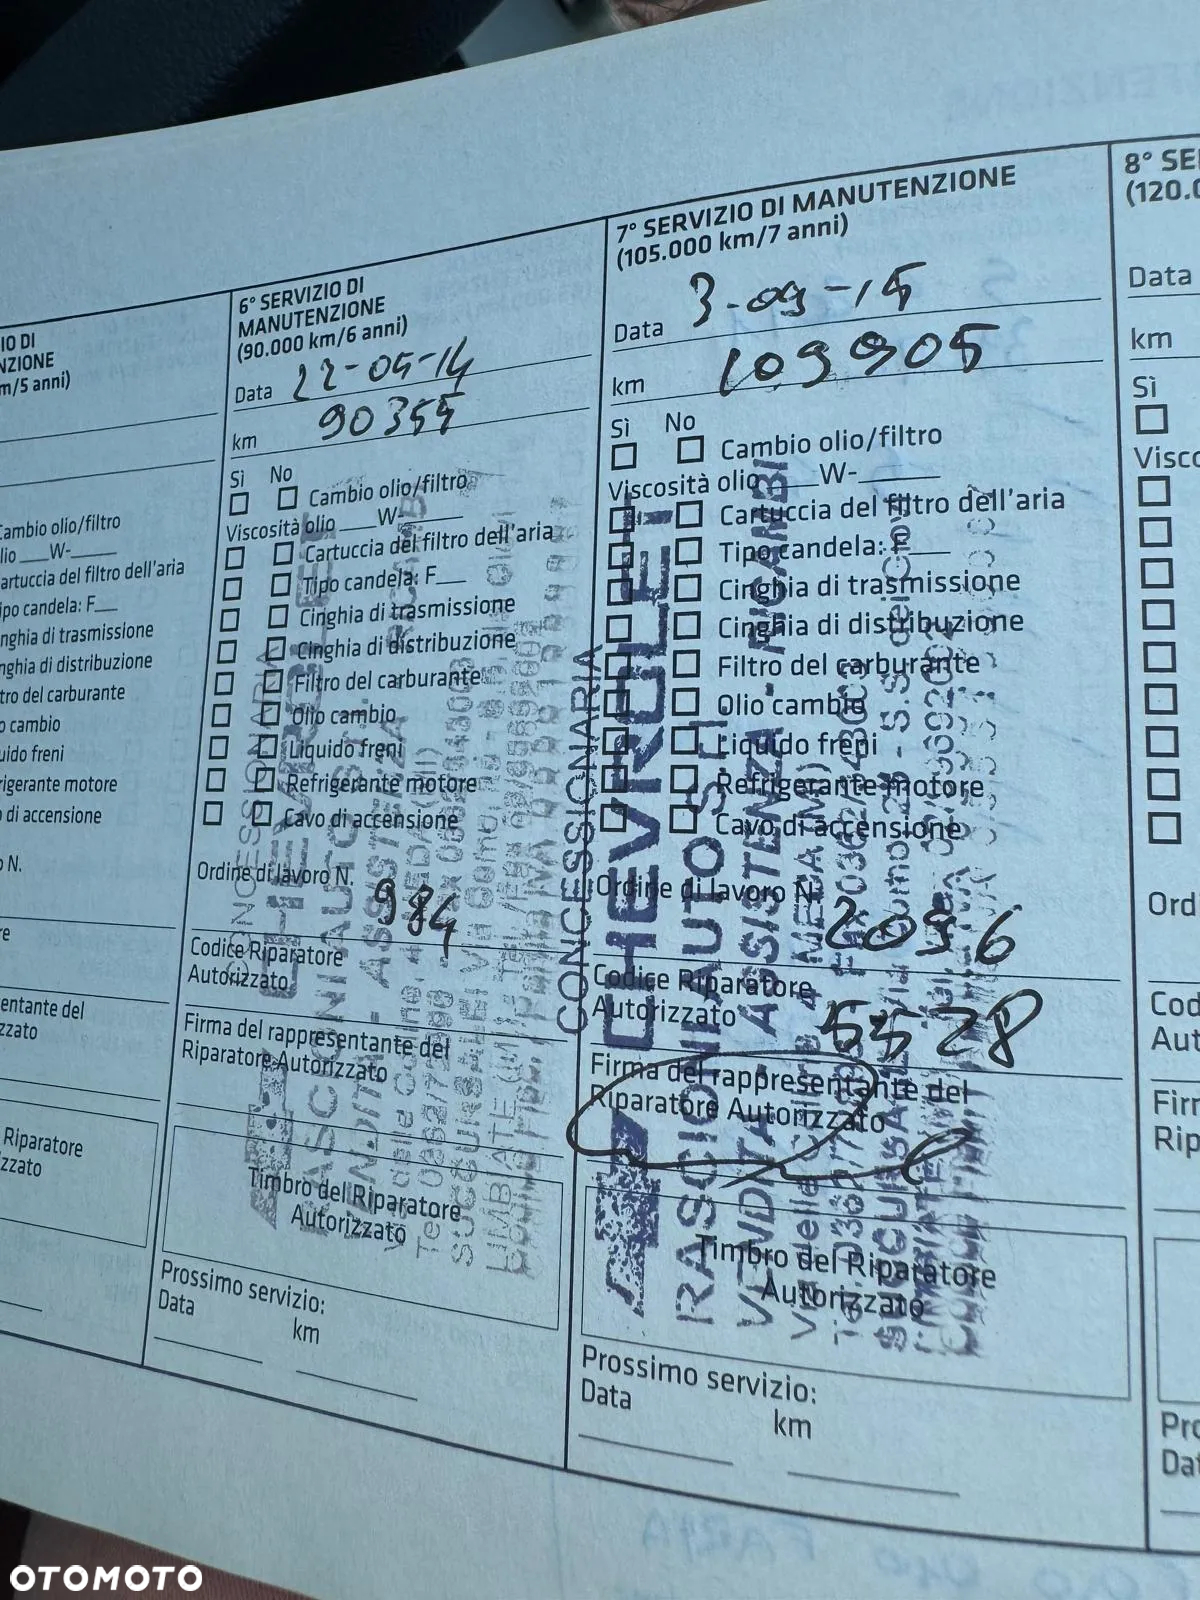 IO DI
NZIONE
m/5 anni)
Cambio olio/filtro
lio ___W-____
artuccia del filtro dell'aria
ipo candela: F__
nghia di trasmissione
nghia di distribuzione
tro del carburante
o cambio
uido freni
rigerante motore
o di accensione
o N.
re
entante del
zzato
Riparatore
zzato
6° SERVIZIO DI
MANUTENZIONE
(90.000 km/6 anni)
Data 22-05-14
km 90355
Sì No
Cambio olio/filtro
Viscosità olio ___W-____
Cartuccia del filtro dell'aria
Tipo candela: F__
Cinghia di trasmissione
Cinghia di distribuzione
Filtro del carburante
Olio cambio
Liquido freni
Refrigerante motore
Cavo di accensione
Ordine di lavoro N. 984
Codice Riparatore
Autorizzato
Firma del rappresentante del
Riparatore Autorizzato
Timbro del Riparatore
Autorizzato
Prossimo servizio:
Data
km
7° SERVIZIO DI MANUTENZIONE
(105.000 km/7 anni)
Data 3-09-15
km 109905
Sì No
Cambio olio/filtro
Viscosità olio ____W-_____
Cartuccia del filtro dell'aria
Tipo candela: F___
Cinghia di trasmissione
Cinghia di distribuzione
Filtro del carburante
Olio cambio
Liquido freni
Refrigerante motore
Cavo di accensione
Ordine di lavoro N. 2096
Codice Riparatore
Autorizzato 5528
Firma del rappresentante del
Riparatore Autorizzato
Timbro del Riparatore
Autorizzato
CONCESSIONARIA
CHEVROLET
RASCIONI AUTO S.r.l.
VENDITA - ASSISTENZA - RICAMBI
Prossimo servizio:
Data
km
8° SE
(120.0
Data
km
Sì
Visco
Ord
Cod
Aut
Firm
Rip
Pro
Dat
OTOMOTO